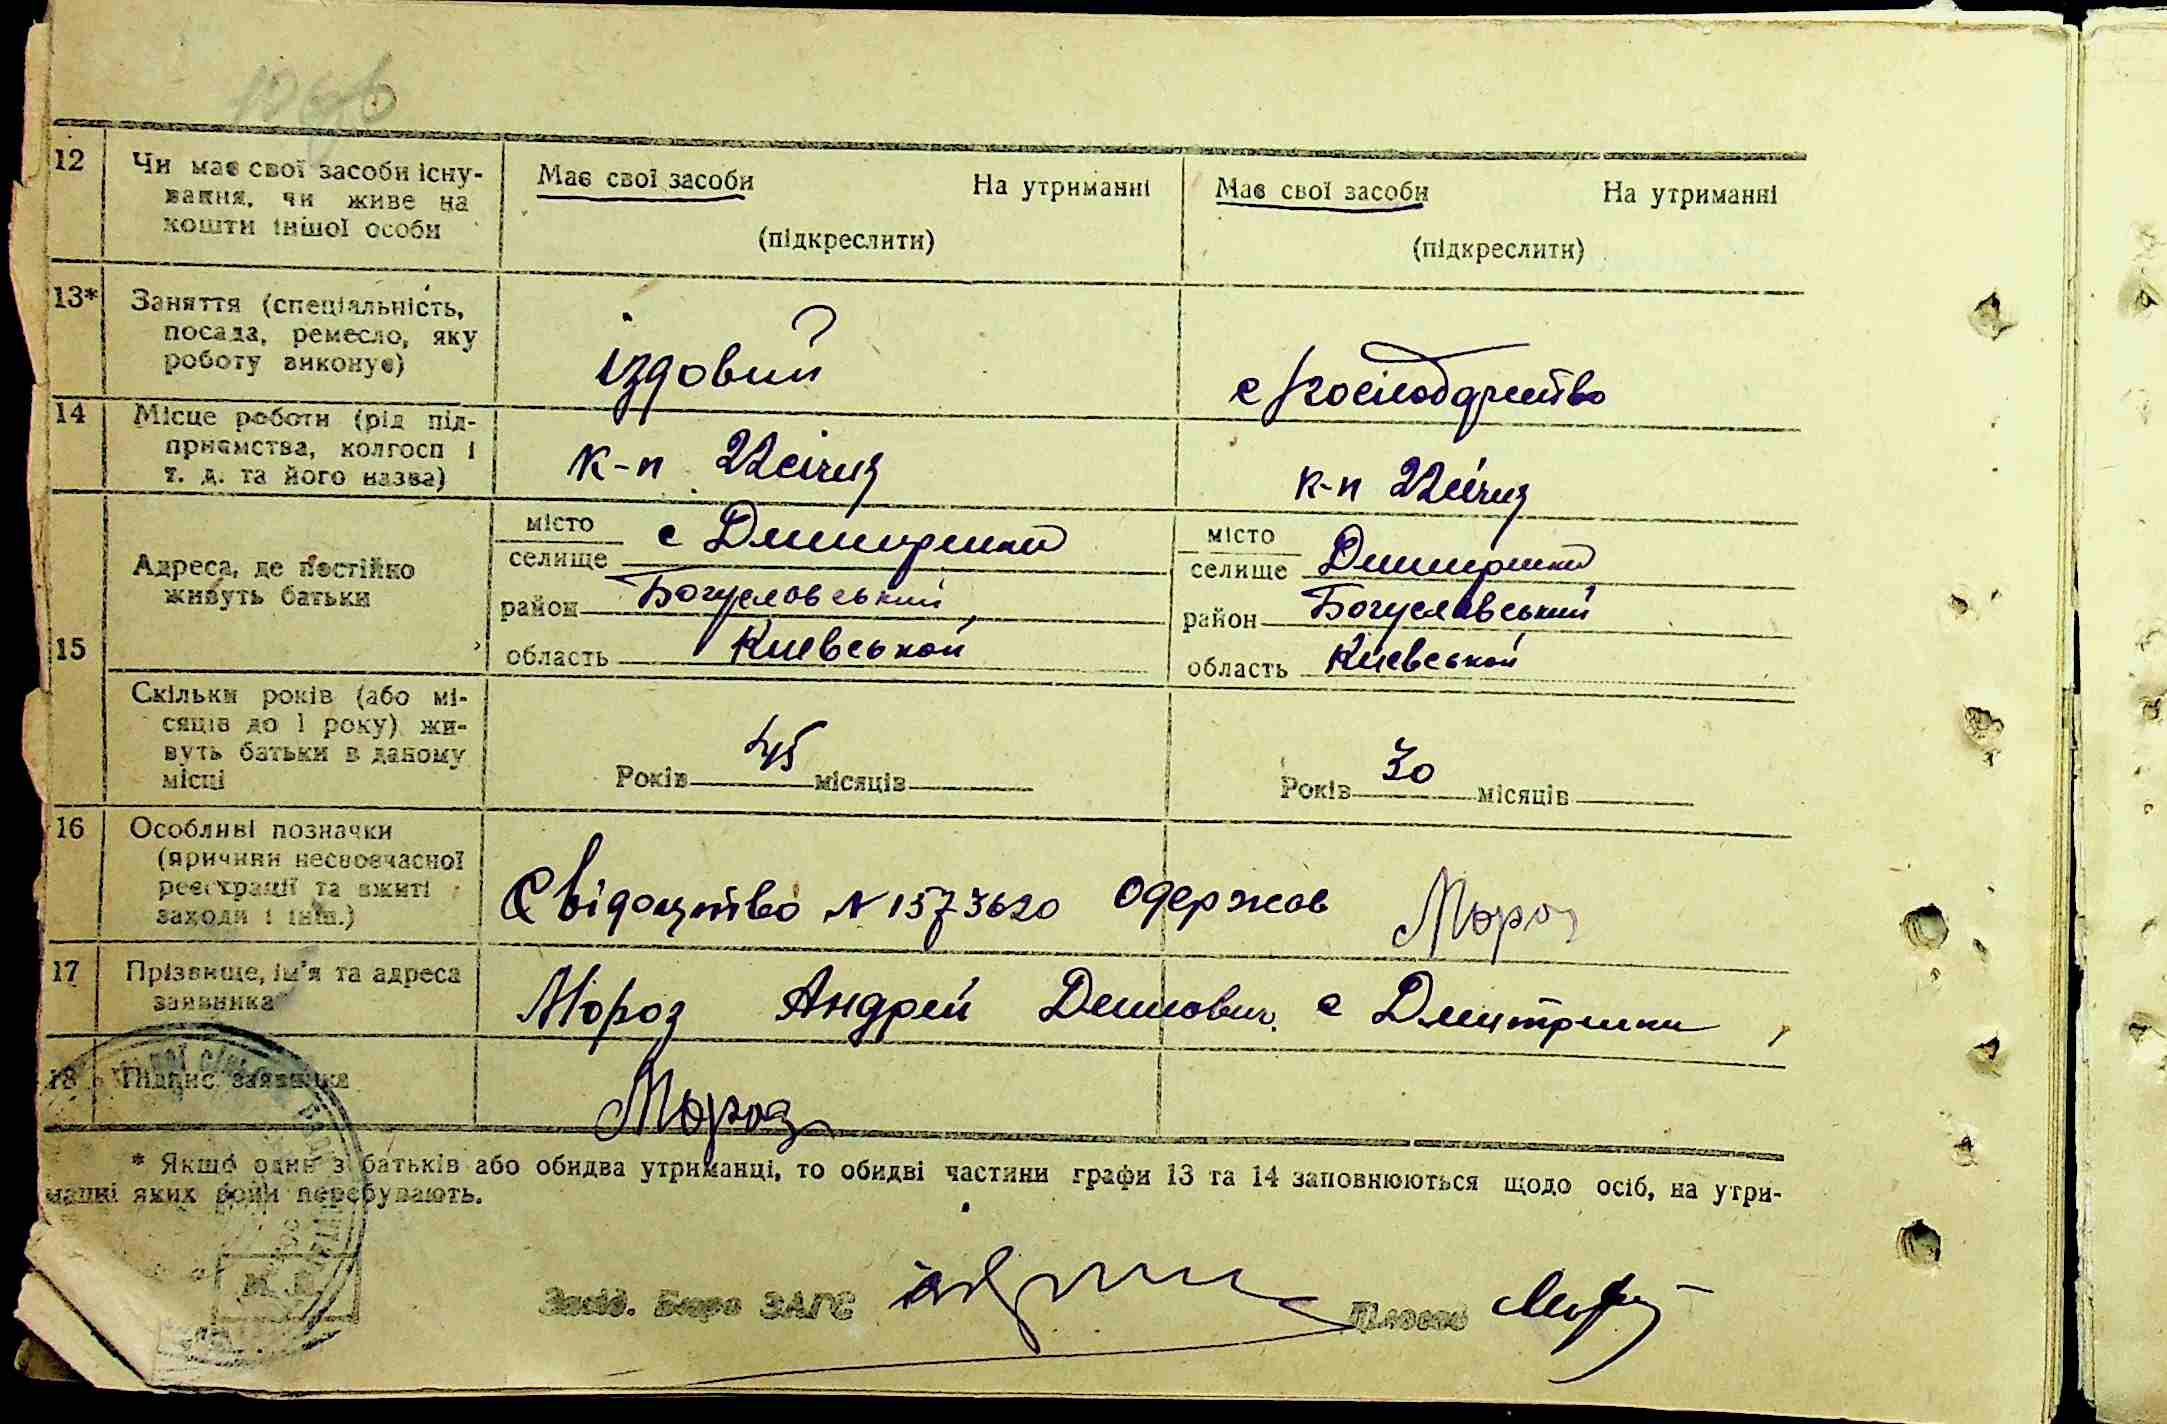 12 Чи має свої засоби існу-
вання, чи живе на
кошти іншої особи
Має свої засоби На утриманні
(підкреслити)
Має свої засоби На утриманні
(підкреслити)
13* Заняття (спеціальність,
посада, ремесло, яку
роботу виконує)
їздовий
с господарство
14 Місце роботи (рід під-
приємства, колгосп і
т. д. та його назва)
к-п
к-п
15 Адреса, де постійно
живуть батьки
місто
селище с Дмитришки
район Богуславський
область Київської
місто
селище Дмитришки
район Богуславський
область Київської
Скільки років (або мі-
сяців до 1 року) жи-
вуть батьки в даному
місці
Років 45 місяців
Років 30 місяців
16 Особливі позначки
(причини несвоєчасної
реєстрації та вжиті
заходи і інш.)
Свідоцтво № 1573620 одержав Мороз
17 Прізвище, ім'я та адреса
заявника
Мороз Андрей с Дмитришки
18 Підпис заявника
Мороз
* Якщо один з батьків або обидва утриманці, то обидві частини графи 13 та 14 заповнюються щодо осіб, на утри-
манні яких вони перебувають.
М. П.
Завід. Бюро ЗАГС